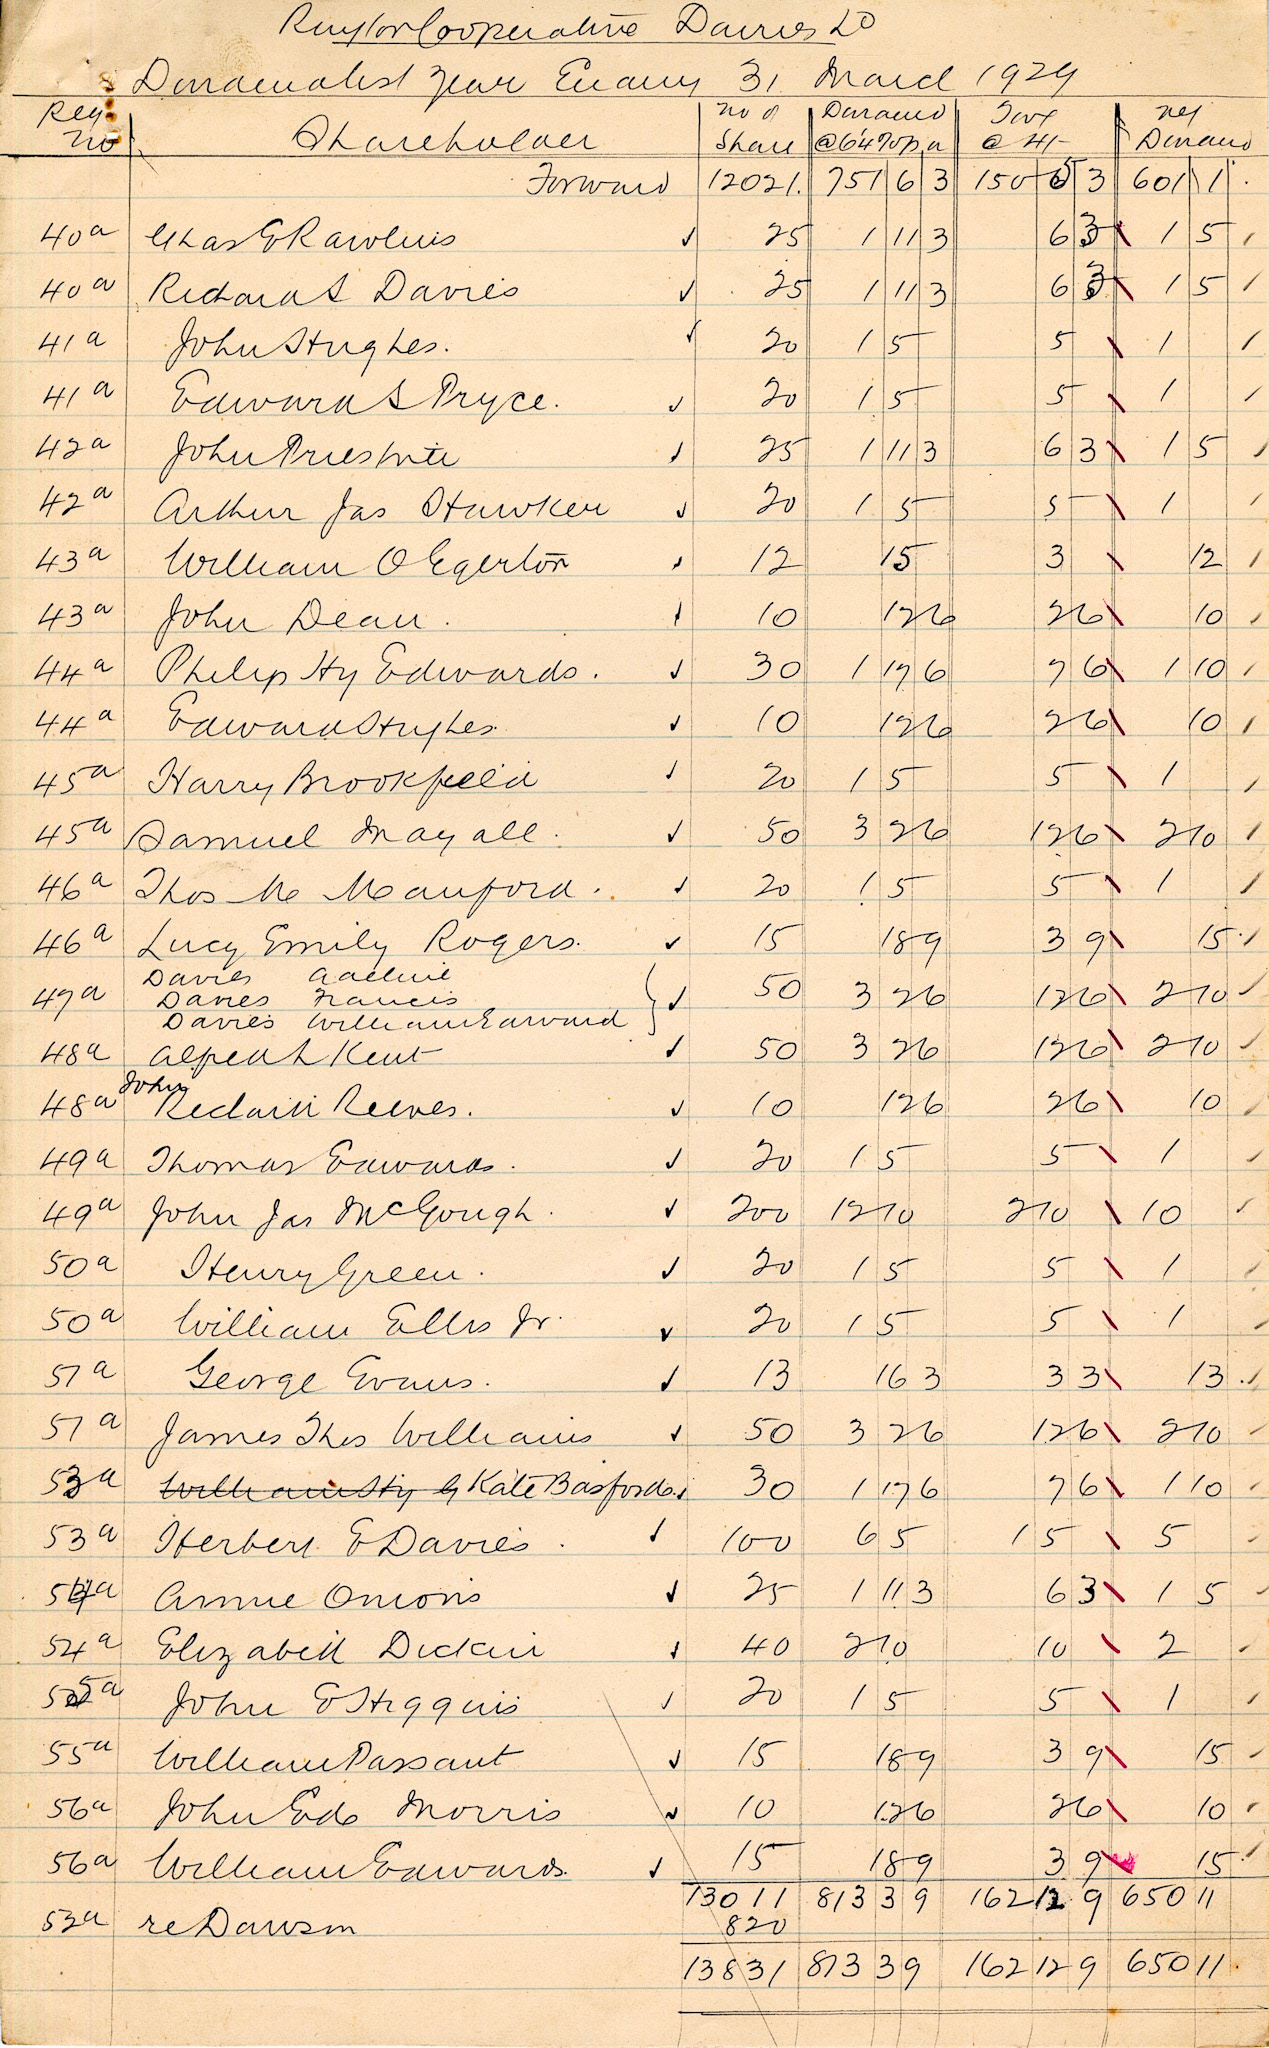 Ruyton Cooperative Dairies Ld
Dividend list Year Ending 31 March 1929
Reg No Shareholder No of Share Dividend @ 6¼% p.a Tax @ 4/- Net Dividend
Forward 12021 751 6 3 150 5 3 601 1
40a Chas E Rawlins 25 1 11 3 6 3 1 5
40a Richard S Davies 25 1 11 3 6 3 1 5
41a John Hughes. 20 1 5 5 1
41a Edward S Pryce. 20 1 5 5 1
42a John 25 1 11 3 6 3 1 5
42a Arthur Jas Hawker 20 1 5 5 1
43a William O Egerton 12 15 3 12
43a John Dean. 10 12 6 2 6 10
44a Philip Hy Edwards. 30 1 17 6 7 6 1 10
44a Edward Hughes. 10 12 6 2 6 10
45a Harry Brookfield 20 1 5 5 1
45a Samuel Mayall. 50 3 2 6 12 6 2 10
46a Thos M Manford. 20 1 5 5 1
46a Lucy Emily Rogers. 15 18 9 3 9 15
Davies Adeline
47a Davies Francis 50 3 2 6 12 6 2 10
Davies William Edward
48a Alfred L Kent 50 3 2 6 12 6 2 10
John
48a Reeves. 10 12 6 2 6 10
49a Thomas Edwards. 20 1 5 5 1
49a John Jas McGough. 200 12 10 2 10 10
50a Henry Green. 20 1 5 5 1
50a William Ellis Jr. 20 1 5 5 1
51a George Evans. 13 16 3 3 3 13
51a James Thos Williams 50 3 2 6 12 6 2 10
53a William Hy G Kate Basford. 30 1 17 6 7 6 1 10
53a Herbert E Davies. 100 6 5 1 5 5
54a Annie Onions 25 1 11 3 6 3 1 5
54a Elizabeth Dickin 40 2 10 10 2
55a John E Higginis 20 1 5 5 1
55a William Passant 15 18 9 3 9 15
56a John Edo Morris 10 12 6 2 6 10
56a William Edwards. 15 18 9 3 9 15
13011 813 3 9 162 12 9 650 11
53a re Dawson 820
13831 813 3 9 162 12 9 650 11